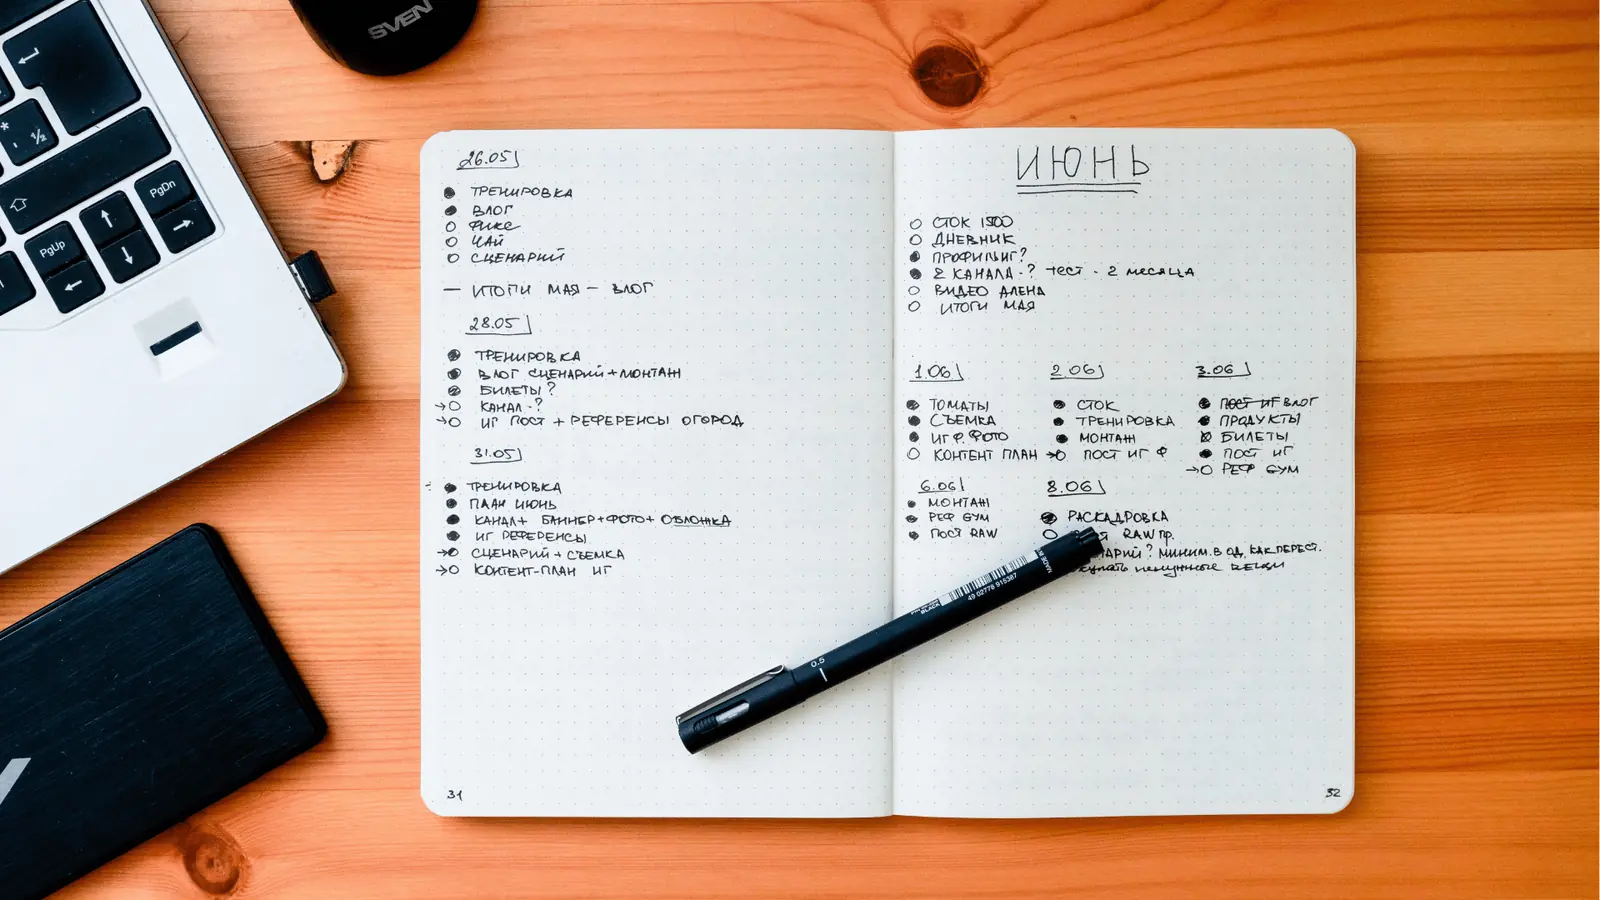 SVEN
* ½
PgDn
PgUp
26.05
ТРЕНИРОВКА
ВЛОГ
ФИКС
ЧАЙ
СЦЕНАРИЙ
— ИТОГИ МАЯ — ВЛОГ
28.05
ТРЕНИРОВКА
ВЛОГ СЦЕНАРИЙ + МОНТАЖ
БИЛЕТЫ?
→ КАНАЛ - ?
→ ИГ ПОСТ + РЕФЕРЕНСЫ ОГОРОД
31.05
ТРЕНИРОВКА
ПЛАН ИЮНЬ
КАНАЛ + БАННЕР + ФОТО + ОБЛОЖКА
ИГ РЕФЕРЕНСЫ
→ СЦЕНАРИЙ + СЪЕМКА
→ КОНТЕНТ-ПЛАН ИГ
31
ИЮНЬ
СТОК 1500
ДНЕВНИК
2 КАНАЛА - ? ТЕСТ - 2 месяца
ВИДЕО АЛЕНА
ИТОГИ МАЯ
1.06
ТОМАТЫ
СЪЕМКА
ИГ Ф. ФОТО
КОНТЕНТ ПЛАН
2.06
СТОК
ТРЕНИРОВКА
МОНТАЖ
→ ПОСТ ИГ Ф
3.06
ПОСТ ИГ ВЛОГ
ПРОДУКТЫ
БИЛЕТЫ
ПОСТ ИГ
→ РЕФ GYM
6.06
МОНТАЖ
РЕФ GYM
ПОСТ RAW
8.06
РАСКАДРОВКА
RAW ПР.
? МИНИМ. В ОД. КАК ПЕРЕСТ.
ненужные вещи
32
0.5
BLACK
MADE IN